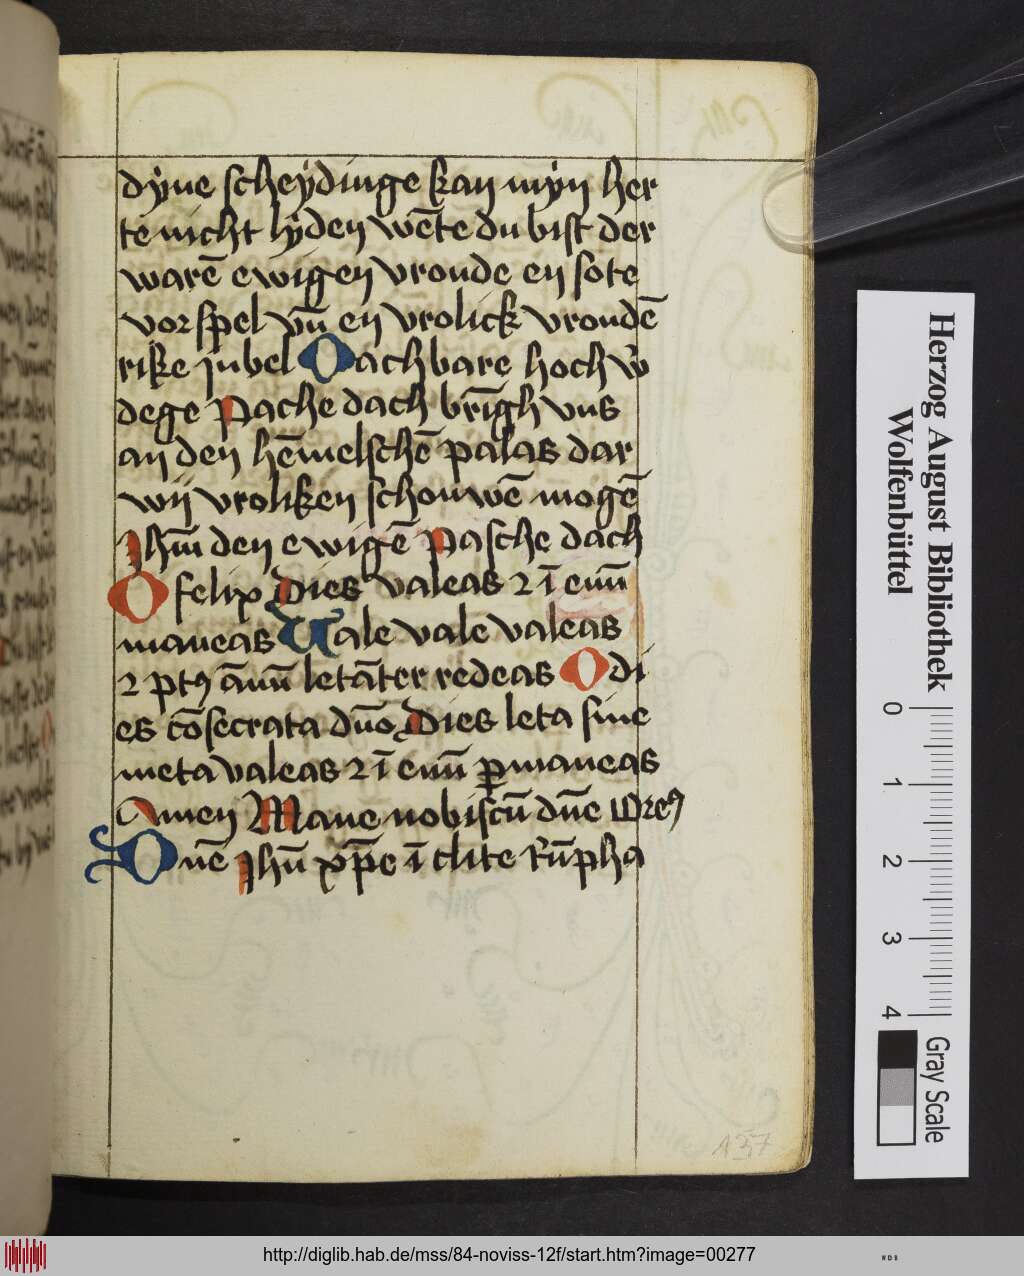 dÿne scheÿdinge kan mÿn her
te nicht lÿden wēte du bist der
warē ewigen vroude en sote
vorspel vn̄ en vrolick vroudē
rike jubel O achbare hoch w̄
dege Pasche dach brīgh vns
an den hēmelschē palas dar
wij vroliken schouwē mogē
Jhm̄ den ewigē Pasche dach
O felix Dies valeas ⁊ ī euū
maneas Vale vale valeas
⁊ ptꝰ ānū letāter redeas O di
es cōsecrata dn̄o Dies leta sine
meta valeas ⁊ ī euū ꝑmaneas
Amen Mane nobiscū dn̄e
Dn̄e Jhū xp̄e ī clite
A 37
Herzog August Bibliothek
Wolfenbüttel
0 1 2 3 4
Gray Scale
http://diglib.hab.de/mss/84-noviss-12f/start.htm?image=00277